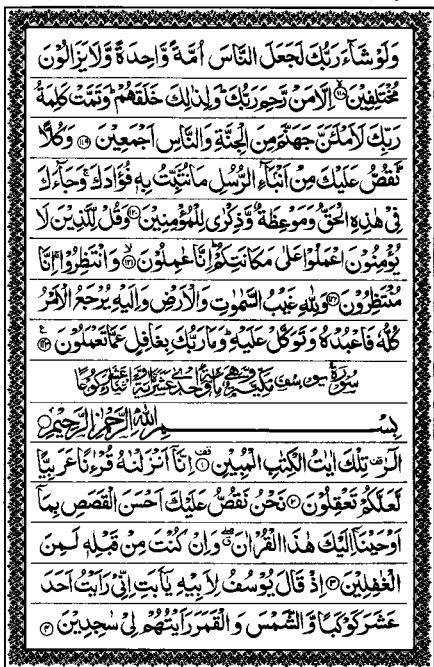 وَلَوْ شَآءَ رَبُّكَ لَجَعَلَ النَّاسَ اُمَّةً وَّاحِدَةً وَّلَا يَزَالُوْنَ
مُخْتَلِفِيْنَ ۙ۱۱۸ اِلَّا مَنْ رَّحِمَ رَبُّكَ ؕ وَلِذٰلِكَ خَلَقَهُمْ ؕ وَتَمَّتْ كَلِمَةُ
رَبِّكَ لَاَمْلَـَٔنَّ جَهَنَّمَ مِنَ الْجِنَّةِ وَالنَّاسِ اَجْمَعِيْنَ ۱۱۹ وَكُلًّا
نَّقُصُّ عَلَيْكَ مِنْ اَنْۢبَآءِ الرُّسُلِ مَا نُثَبِّتُ بِهٖ فُؤَادَكَ ۚ وَجَآءَكَ
فِيْ هٰذِهِ الْحَقُّ وَمَوْعِظَةٌ وَّذِكْرٰى لِلْمُؤْمِنِيْنَ ۱۲۰ وَقُلْ لِّلَّذِيْنَ لَا
يُؤْمِنُوْنَ اعْمَلُوْا عَلٰى مَكَانَتِكُمْ ؕ اِنَّا عٰمِلُوْنَ ۙ۱۲۱ وَانْتَظِرُوْا ۚ اِنَّا
مُنْتَظِرُوْنَ ۱۲۲ وَلِلّٰهِ غَيْبُ السَّمٰوٰتِ وَالْاَرْضِ وَاِلَيْهِ يُرْجَعُ الْاَمْرُ
كُلُّهٗ فَاعْبُدْهُ وَتَوَكَّلْ عَلَيْهِ ؕ وَمَا رَبُّكَ بِغَافِلٍ عَمَّا تَعْمَلُوْنَ ۱۲۳ ع
سُوْرَةُ يُوْسُفَ مَكِّيَّةٌ وَّهِيَ مِائَةٌ وَّاِحْدٰى عَشْرَةَ اٰيَةً وَّاثْنَا عَشَرَ رُكُوْعًا
بِسْمِ اللّٰهِ الرَّحْمٰنِ الرَّحِيْمِ
الٓرٰ ۫ تِلْكَ اٰيٰتُ الْكِتٰبِ الْمُبِيْنِ ۱ اِنَّآ اَنْزَلْنٰهُ قُرْءٰنًا عَرَبِيًّا
لَّعَلَّكُمْ تَعْقِلُوْنَ ۲ نَحْنُ نَقُصُّ عَلَيْكَ اَحْسَنَ الْقَصَصِ بِمَآ
اَوْحَيْنَآ اِلَيْكَ هٰذَا الْقُرْاٰنَ ۖ وَاِنْ كُنْتَ مِنْ قَبْلِهٖ لَمِنَ
الْغٰفِلِيْنَ ۳ اِذْ قَالَ يُوْسُفُ لِاَبِيْهِ يٰٓاَبَتِ اِنِّيْ رَاَيْتُ اَحَدَ
عَشَرَ كَوْكَبًا وَّالشَّمْسَ وَالْقَمَرَ رَاَيْتُهُمْ لِيْ سٰجِدِيْنَ ۴